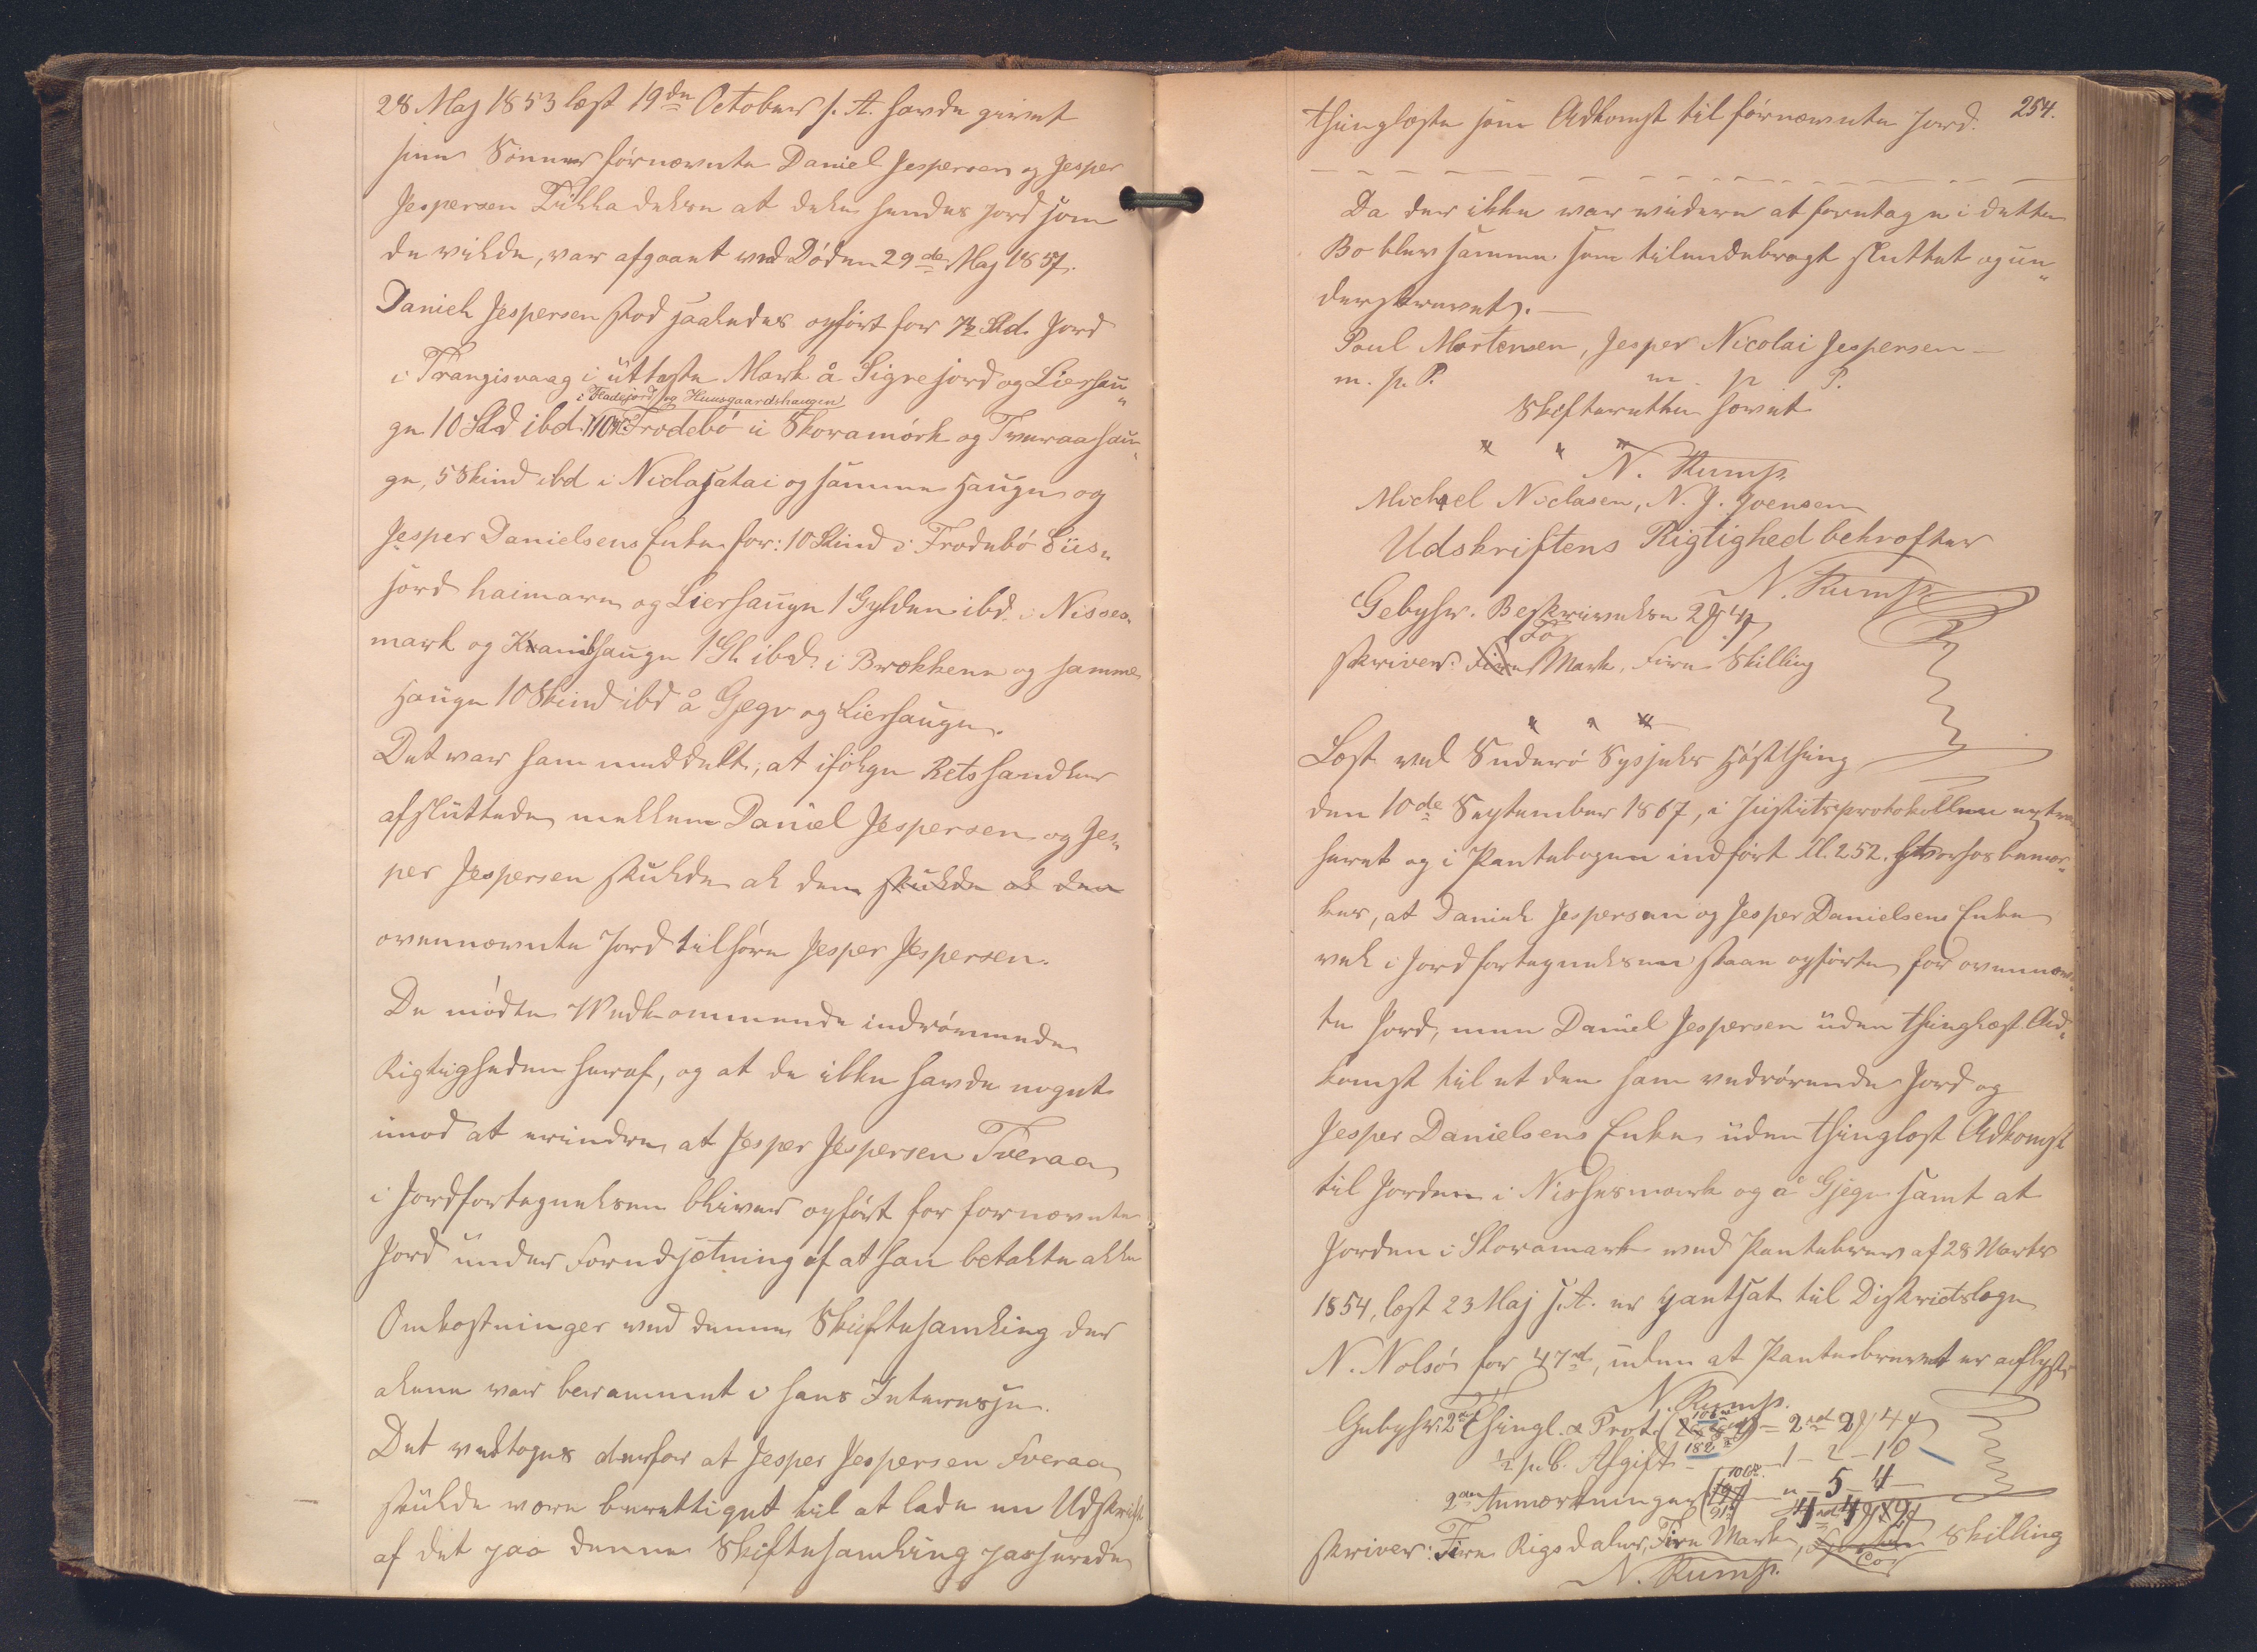 28 Maj 1853 læst 19de October s. A. havde givet
sine Sönner fórnævnte Daniel Jespersen og Jesper
Jespersen Tilladelse at dele hendes Jord som
de vilde, var afgaaet ved Döden 29de Maj 1857.
Daniel Jespersen stod saaledes opfört for 7½ Skd. Jord
i Trangisvaag i ütteste Mark å Signejord og Lierhau„
i Fladejord og Huusgaardshaugen
ge 10 Skd ibd. Frodebö i Skoramörk og Tveraahau„
ge, 5 Skind ibd i Niclasatai og samme Hauge og
Jesper Danielsens Enke for: 10 Skind i Frodebö Süs„
jord haimare og Lierhauge 1 Gylden ibd. i Nisses„
mark og hauge 1 Gl. ibd. i Brekkene og samme
Hauge 10 Skind ibd å Gjegv og Lierhauge.
Det var ham meddelt, at ifölge Retshandler
afsluttede mellem Daniel Jespersen og Jes„
per Jespersen skulde al den skulde al den
ovennævnte Jord tilhöre Jesper Jespersen.
De mödte Vedkommende indrömmede
Rigtigheden heraf, og at de ikke havde noget
imod at erindre, at Jesper Jespersen Tveraa
i Jordfortegnelsen bliver opfört for fornævnte
Jord under Forudsætning af at han betalte alle
Omkostninger ved denne Skiftesamling der
alene var berammet i hans Interesse.
Det vedtoges derfor at Jesper Jespersen Tveraa
skulde være berettiget til at lade en Udskrift
af det paa denne Skiftesamling passerede
254.
thinglæste som Adkomst til fórnævnte Jord.
Da der ikke var videre at foretage i dette
Bo blev samme som tilendebragt sluttet og un„
derskrevet.
Poul Mortensen, Jesper Nicolai Jespersen
m. p. P. m. p. P.
Skifteretten hævet
N. Rump
Michael Niclasen, N. J. Joensen
Udskriftens Rigtighed bekræfter
N. Rump
Gebyhr. Beskrivelse 2 ₰ 4 ₰
To
skriver: Fire Mark, Fire Skilling
Læst ved Suderö Syssels Höstthing
den 10de September 1867, i Justitsprotokollen extra„
heret og i Pantebogen indfört fl. 252. Hvorhos bemær„
kes, at Daniel Jespersen og Jesper Danielsens Enke
vel i Jordfortegnelsen staae opförte for ovennævn„
te Jord, men Daniel Jespersen uden thinglæst Ad„
komst til et den ham vedrörende Jord og
Jesper Danielsens Enke uden thinglæst Adkomst
til Jorden i Nissesmark og å Gjegv samt at
Jorden i Skoramark ved Pantebrev af 28 Marts
1854, læst 23 Maj s. A. er pantsat til Districtslæge
N. Nolsö for 47 rd, uden at Pantebrevet er aflyst.
N. Rump.
Gebyhr. 2 Thingl. & Prot. = 2 rd 2 ₰ 4 ₰
½ p. C. Afgift 182 — 1 - 2 - 10
2 Anmærkninger — „ - 5 - 4
4 rd 4
skriver: Fire Rigsdaler, Fire Mark, Skilling
N. Rump.